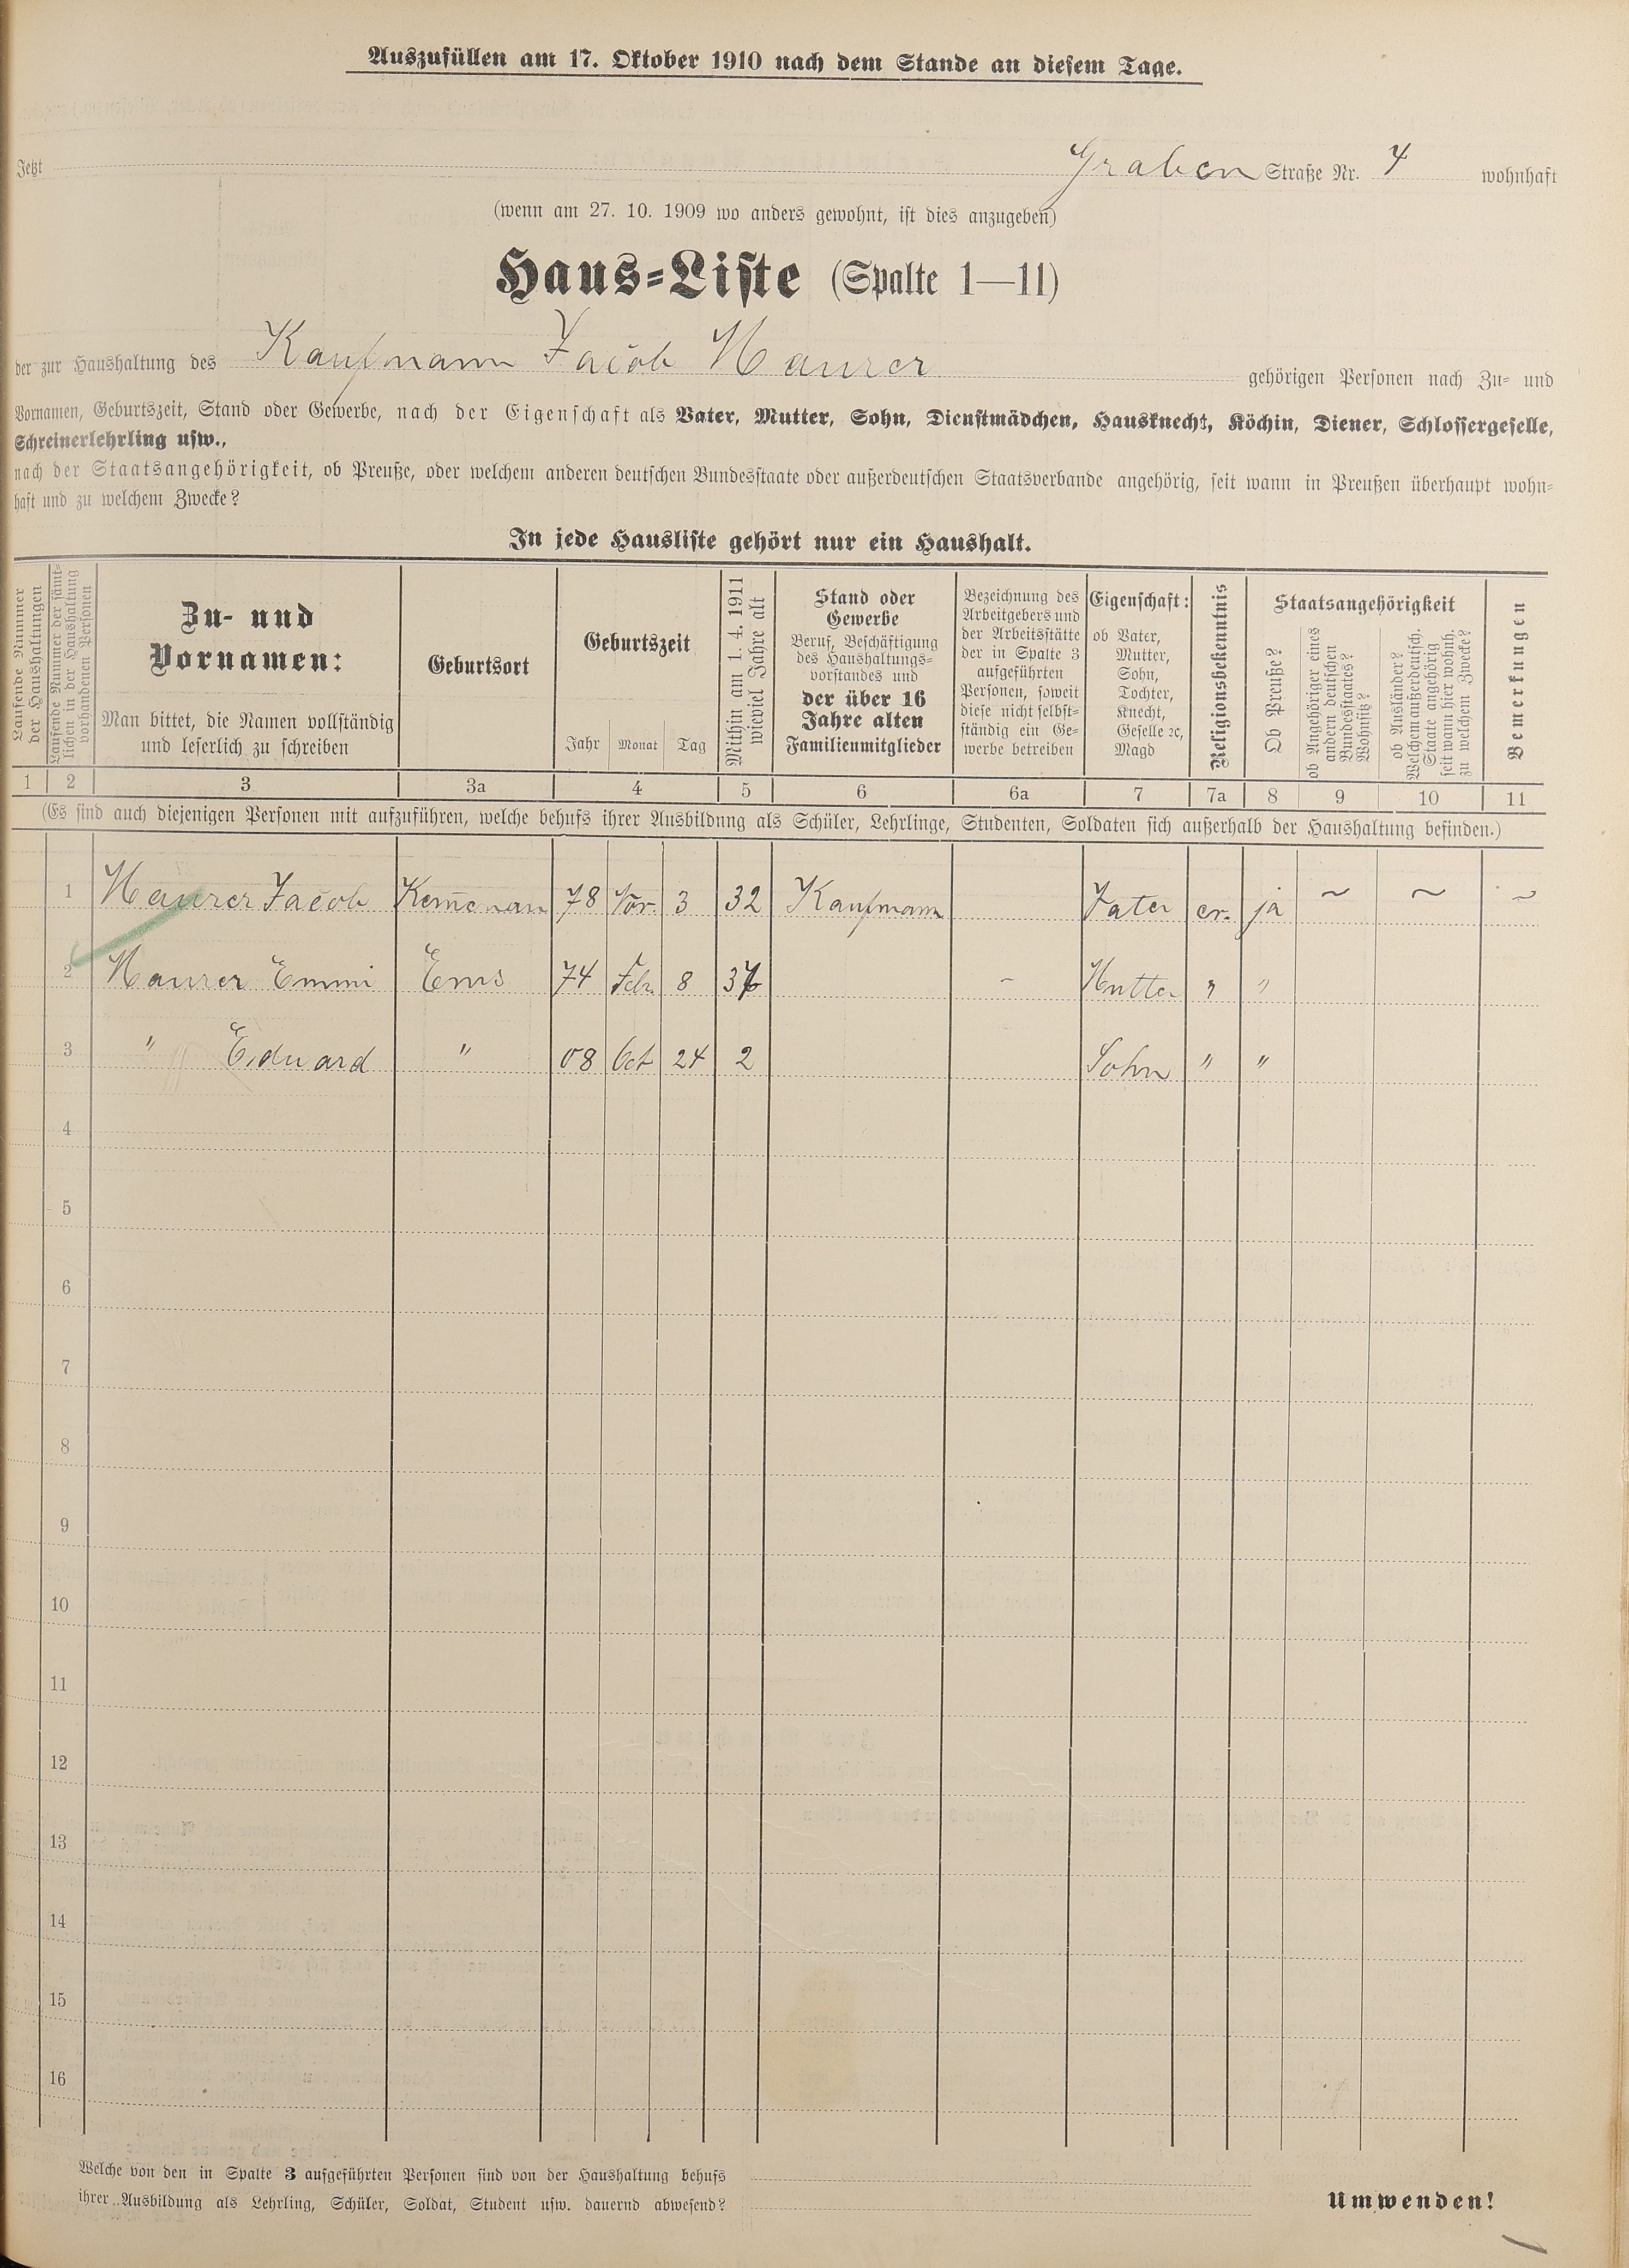 Auszufüllen am 17. Oktober 1910 nach dem Stande an diesem Tage.
Jetzt Graben Straße Nr. 4 wohnhaft
(wenn am 27. 10. 1909 wo anders gewohnt, ist dies anzugeben)
Haus-Liste (Spalte 1—11)
der zur Haushaltung des Kaufmann Jacob Maurer gehörigen Personen nach Zu- und
Vornamen, Geburtszeit, Stand oder Gewerbe, nach der Eigenschaft als Vater, Mutter, Sohn, Dienstmädchen, Hausknecht, Köchin, Diener, Schlossergeselle,
Schreinerlehrling usw.,
nach der Staatsangehörigkeit, ob Preuße, oder welchem anderen deutschen Bundesstaate oder außerdeutschen Staatsverbande angehörig, seit wann in Preußen überhaupt wohn-
haft und zu welchem Zwecke?
In jede Hausliste gehört nur ein Haushalt.
Laufende Nummer
der Haushaltungen
Laufende Nummer der sämt-
lichen in der Haushaltung
vorhandenen Personen
Zu- und
Vornamen:
Man bittet, die Namen vollständig
und leserlich zu schreiben
Geburtsort
Geburtszeit
Jahr Monat Tag
Mithin am 1. 4. 1911
wieviel Jahre alt
Stand oder
Gewerbe
Beruf, Beschäftigung
des Haushaltungs-
vorstandes und
der über 16
Jahre alten
Familienmitglieder
Bezeichnung des
Arbeitgebers und
der Arbeitsstätte
der in Spalte 3
aufgeführten
Personen, soweit
diese nicht selbst-
ständig ein Ge-
werbe betreiben
Eigenschaft:
ob Vater,
Mutter,
Sohn,
Tochter,
Knecht,
Geselle ꝛc,
Magd
Religionsbekenntnis
Staatsangehörigkeit
Ob Preuße?
ob Angehöriger eines
andern deutschen
Bundesstaates?
Wohnsitz?
ob Ausländer?
Welchem außerdeutsch.
Staate angehörig
seit wann hier wohnh.
zu welchem Zwecke?
Bemerkungen
1 2 3 3a 4 5 6 6a 7 7a 8 9 10 11
(Es sind auch diejenigen Personen mit aufzuführen, welche behufs ihrer Ausbildung als Schüler, Lehrlinge, Studenten, Soldaten sich außerhalb der Haushaltung befinden.)
1 Maurer Jacob Kemenau 78 Nov. 3 32 Kaufmann Vater ev. ja ~ ~ ~
2 Maurer Emmi Ems 74 Feb. 8 37 - Mutter " "
3 " Eduard " 08 Oct 24 2 Sohn " "
4
5
6
7
8
9
10
11
12
13
14
15
16
Welche von den in Spalte 3 aufgeführten Personen sind von der Haushaltung behufs
ihrer Ausbildung als Lehrling, Schüler, Soldat, Student usw. dauernd abwesend?
Umwenden!